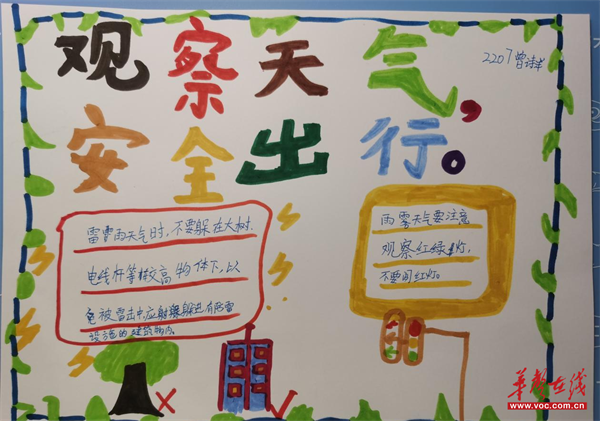 观察天气,
安全出行。
2207曾诗羊
雷雷雨天气时,不要躲在大树.
电线杆等较高物体下,以
免被雷击中应躲进有防雷
设施的建筑物内
雨雾天气要注意
观察红绿灯,
不要闯红灯。
华声在线
www.voc.com.cn